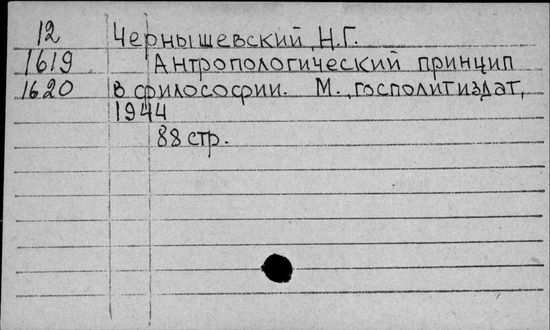 12 Чернышевский, Н.Г.
1619 Антропологический принцип
1620 в философии. М., госполитиздат,
1944
88 стр.